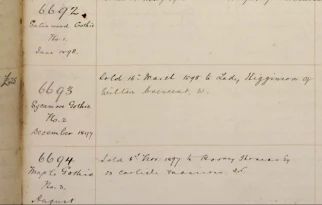 6692.
Satinwood Gothic
No. 1.
June 1898.
6693
Sycamore Gothic
No. 2
December 1897
Sold 16th March 1898 to Lady Higginson of
Wilton Crescent, W.
6694
Maple Gothic
No. 3,
August
Sold 1st Nov. 1897 to Harvey Thomas Esq
Carlisle Mansions, SW.